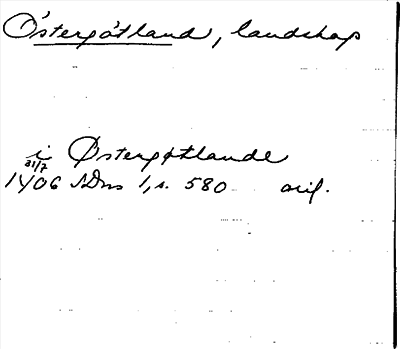 Östergötland, landskap
i Østergøtlande
31/7
1406 SDns 1, s. 580 orig.